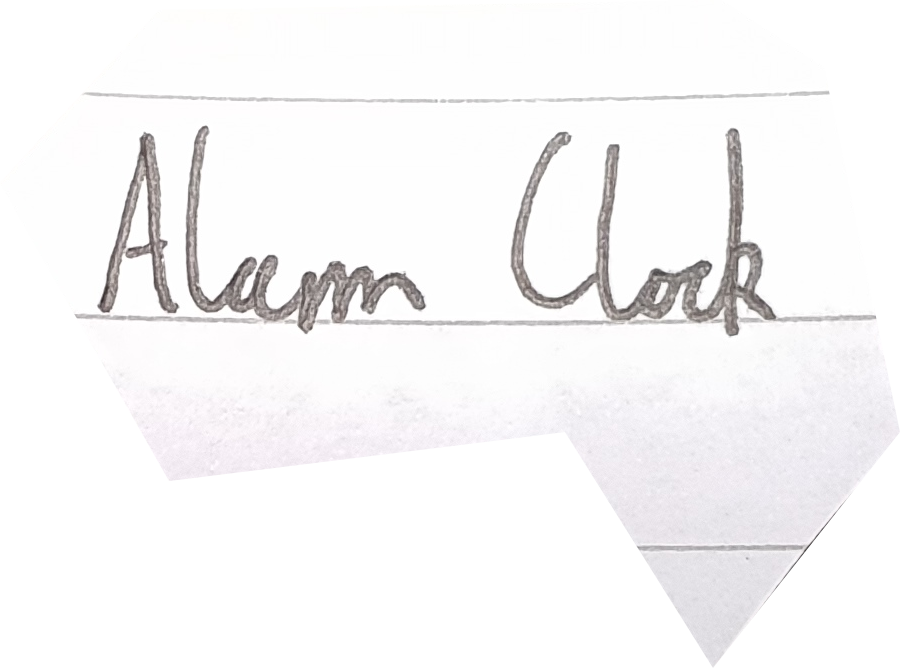 Alarm Clock